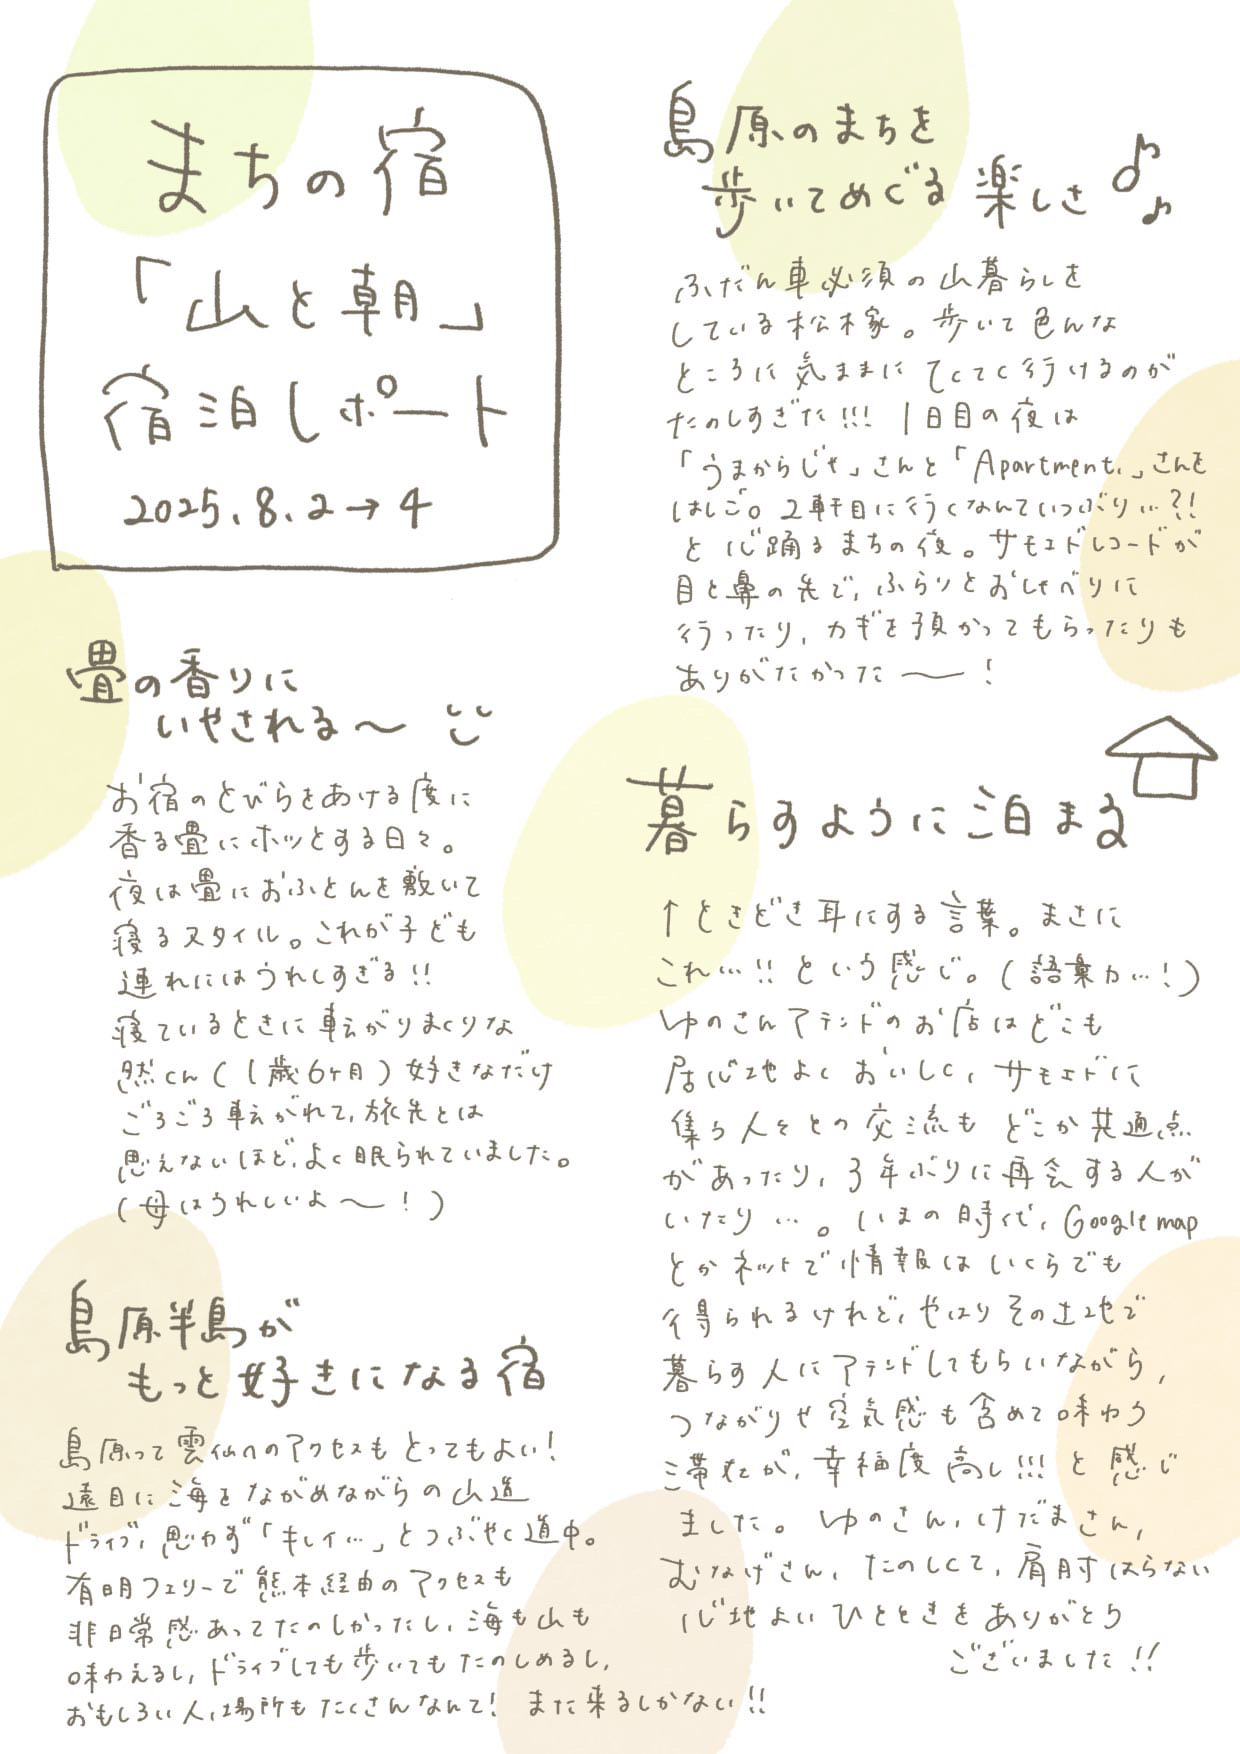 まちの宿
「山と朝」
宿泊レポート
2025.8.2→4
畳の香りに
いやされる〜
お宿のとびらをあける度に
香る畳にホッとする日々。
夜は畳におふとんを敷いて
寝るスタイル。これが子ども
連れにはうれしすぎる!!
寝ているときに転がりまくりな
然くん(1歳6ヶ月)好きなだけ
ごろごろ転がれて、旅先とは
思えないほど、よく眠られていました。
(母はうれしいよ〜!)
島原半島が
もっと好きになる宿
島原って雲仙へのアクセスもとってもよい!
遠目に海をながめながらの山道
ドライブ、思わず「キレイ…」とつぶやく道中。
有明フェリーで熊本経由のアクセスも
非日常感あってたのしかったし、海も山も
味わえるし、ドライブしても歩いてもたのしめるし、
おもしろい人、場所もたくさんなんて! また来るしかない!!
島原のまちを
歩いてめぐる楽しさ♪♪
ふだん車必須の山暮らしを
している松本家。歩いて色んな
ところに気ままにてくてく行けるのが
たのしすぎた!!! 1日目の夜は
「うまからじゃ」さんと「Apartment.」さんを
はしご。2軒目に行くなんていつぶり…?!
と心踊るまちの夜。サモエドレコードが
目と鼻の先で、ふらりとおしゃべりに
行ったり、カギを預かってもらったりも
ありがたかった〜!
暮らすように泊まる
↑ときどき耳にする言葉。まさに
これ…!!という感じ。(語彙力…!)
ゆのさんアテンドのお店はどこも
居心地よくおいしく、サモエドに
集う人々との交流もどこか共通点
があったり、3年ぶりに再会する人が
いたり…。いまの時代、Google map
とかネットで情報はいくらでも
得られるけれど、やはりその土地で
暮らす人にアテンドしてもらいながら、
つながりや空気感も含めて味わう
滞在が、幸福度高し!!!と感じ
ました。ゆのさん、けだまさん、
むなげさん、たのしくて、肩肘はらない
心地よいひとときをありがとう
ございました!!